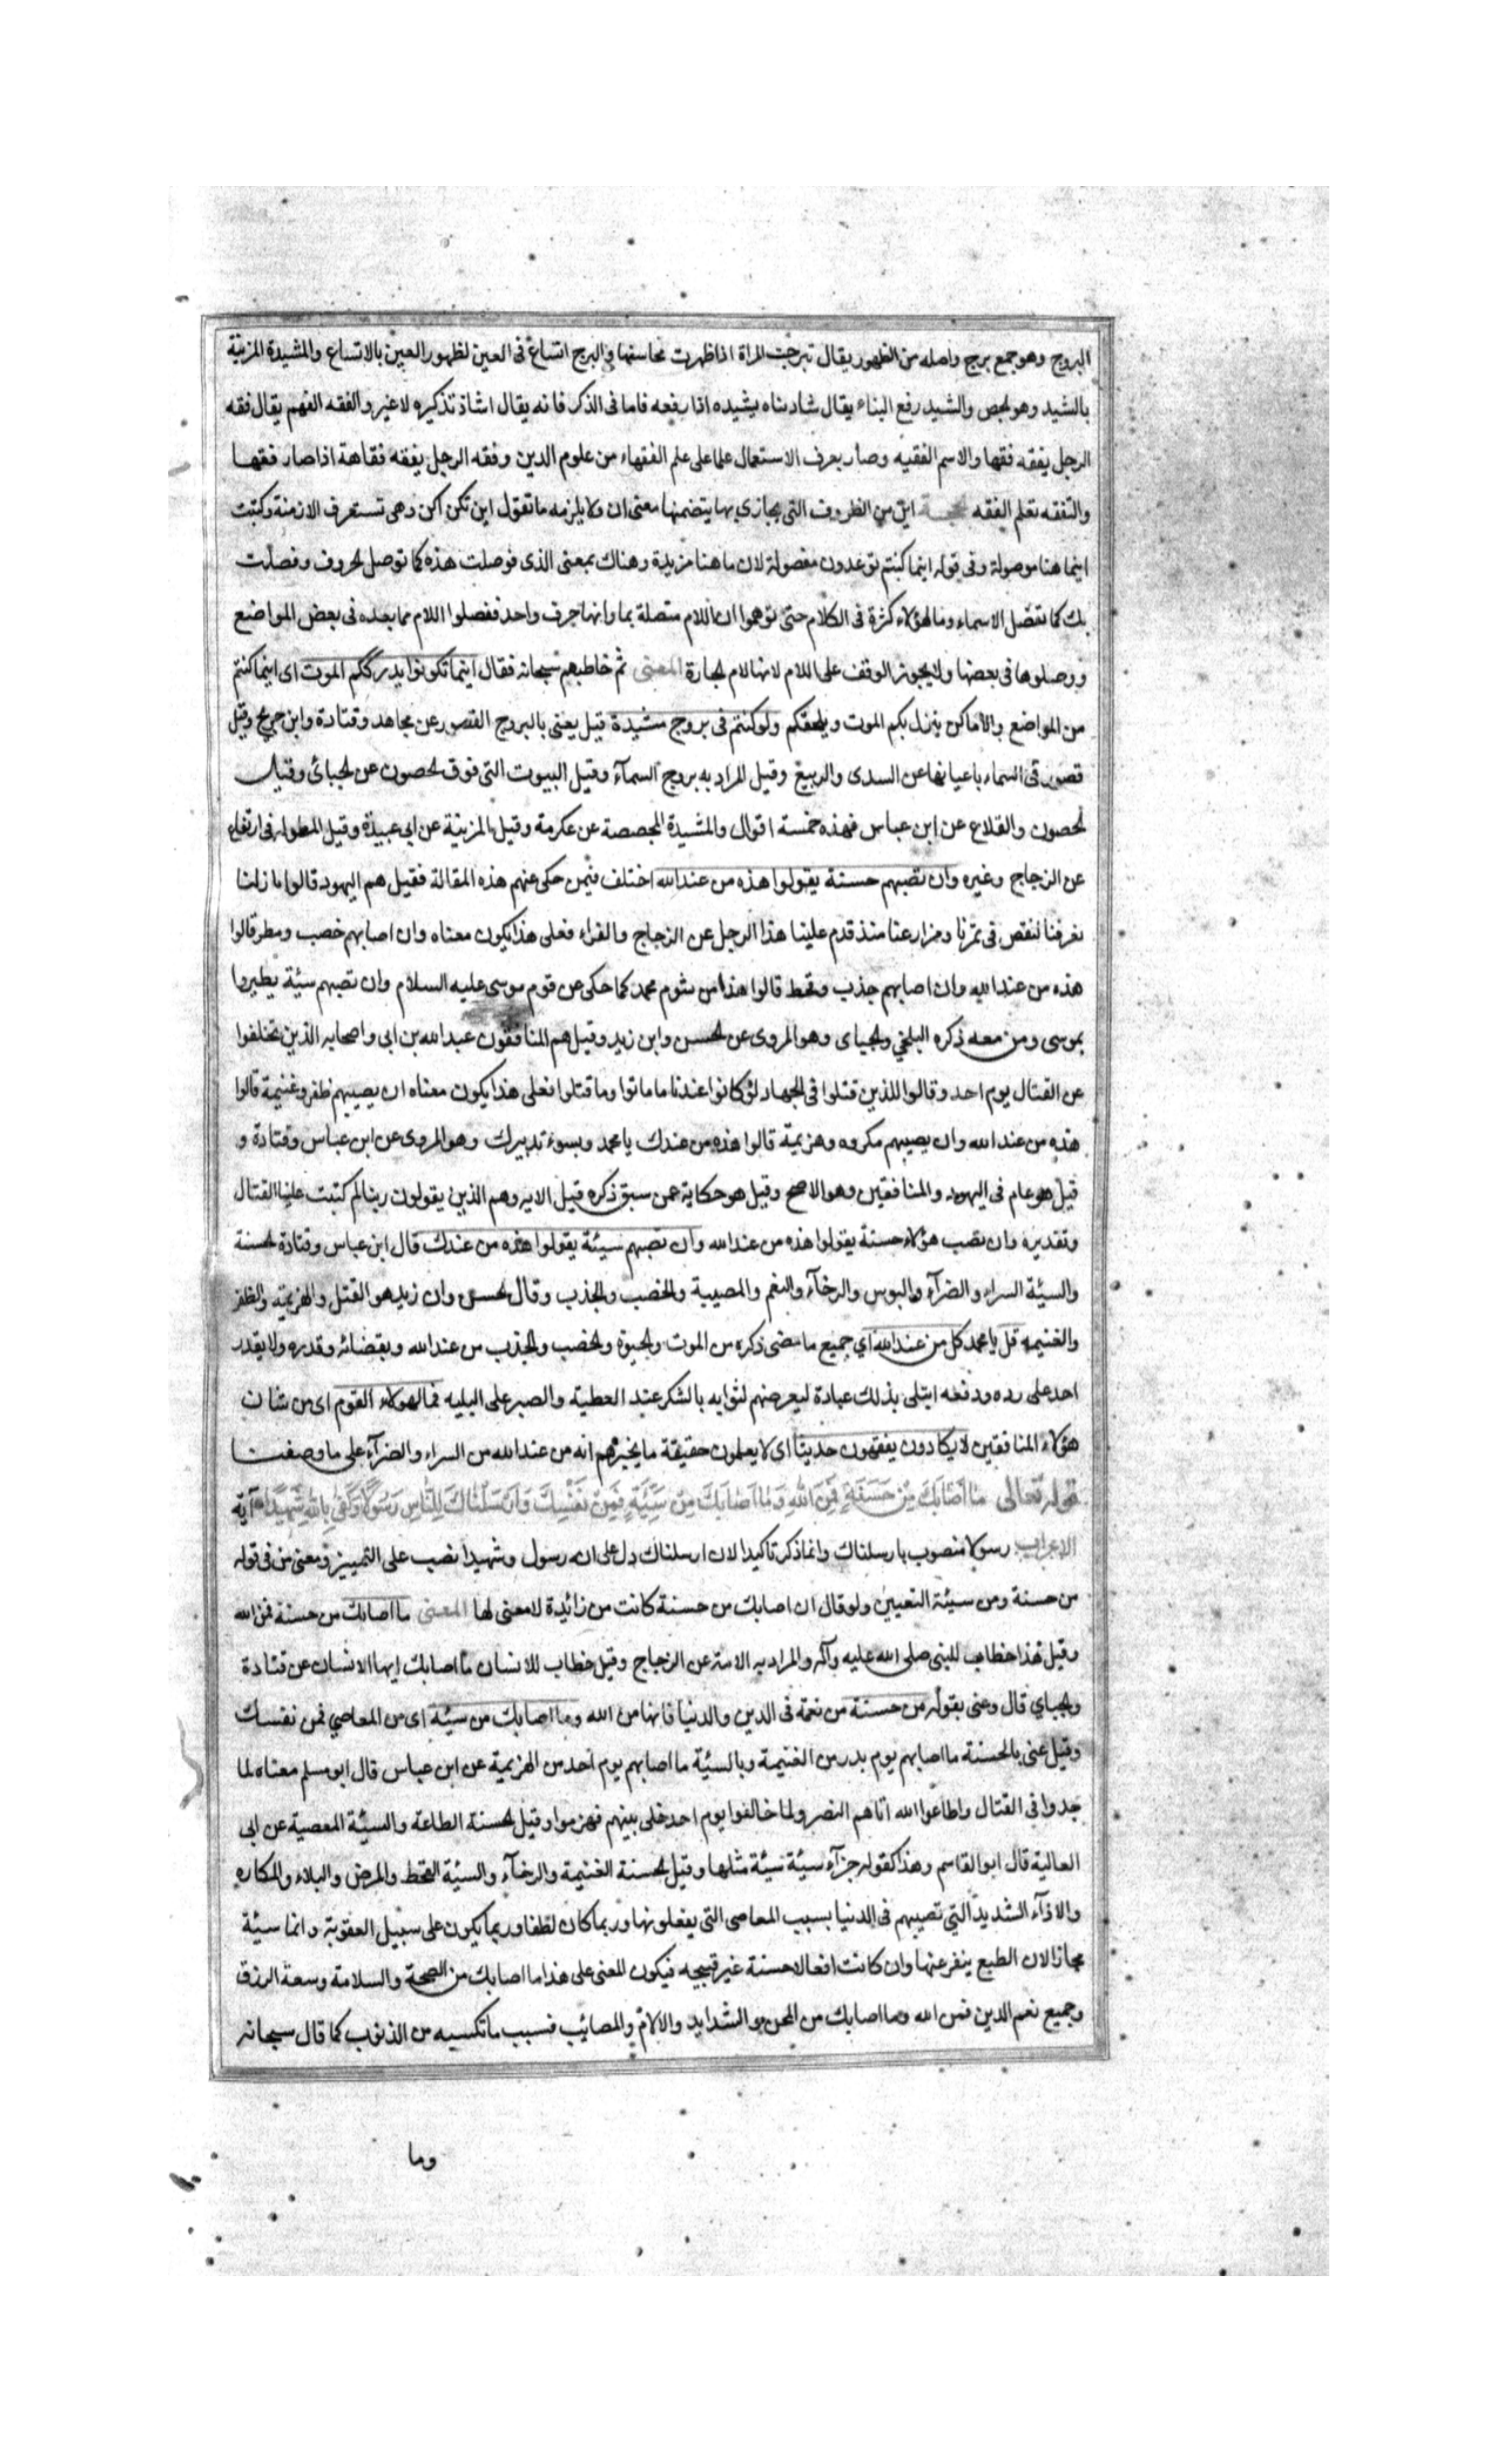 البروج وهو جمع برج واصله من الظهور يقال تبرجت المراة اذا ظهرت محاسنها والبرج اتساع فى العين لظهور العين بالاتساع والمشيدة المزينة
بالشيد وهو الجص والشيد رفع البناء يقال شاد بناه يشيده اذا رفعه فاما فى الذكر فانه يقال اشاذ تذكيره لا غير والفقه الفهم يقال فقه
الرجل يفقه فقها والاسم الفقيه وصار بعرف الاستعمال علما على علم الفقهاء من علوم الدين وفقه الرجل يفقه فقاهة اذا صار فقها
والتفقه تعلم الفقه اين من الظروف التى يجازى بها يتضمنها معنى ان ولا يلزمه ما تقول اين تكن اكن وهى تستعرف الازمنة وكتبت
اينما هنا موصولة وفى قوله اينما كنتم توعدون مفصولة لان ما هنا مزيدة وهناك بمعنى الذى فوصلت هذه كما توصل الحروف وفصلت
بك كما تفصل الاسماء وما لهؤلاء كثرة فى الكلام حتى توهموا ان اللام متصلة بما وانها حرف واحد ففصلوا اللام مما بعده فى بعض المواضع
ووصلوها فى بعضها ولا يجوز الوقف على اللام لانها لام الجارة المعنى ثم خاطبهم سبحانه فقال اينما تكونوا يدرككم الموت اى اينما كنتم
من المواضع والاماكن ينزل بكم الموت ويلحقكم ولو كنتم فى بروج مشيدة قيل يعنى بالبروج القصور عن مجاهد وقتادة وابن جريج وقيل
قصور فى السماء باعيانها عن السدى والربيع وقيل المراد به بروج السمآء وقيل البيوت التى فوق الحصون عن الجبائى وقيل
الحصون والقلاع عن ابن عباس فهذه خمسة اقوال والمشيدة المجصصة عن عكرمة وقيل المزينة عن ابى عبيدة وقيل المطولة فى ارتفاع
عن الزجاج وغيره وان تصبهم حسنة يقولوا هذه من عند الله اختلف فيمن حكى عنهم هذه المقالة فقيل هم اليهود قالوا ما زلنا
نعرفنا لنقص فى ثمرنا ومزارعنا منذ قدم علينا هذا الرجل عن الزجاج والفراء فعلى هذا يكون معناه وان اصابهم خصب ومطر قالوا
هذه من عند الله وان اصابهم جذب وقحط قالوا هذا من شوم محمد كما حكى عن قوم موسى عليه السلام وان تصبهم سيئة يطيروا
بموسى ومن معه ذكره البلخى والجباى وهو المروى عن الحسن وابن زيد وقيل هم المنافقون عبد الله بن ابى واصحابه الذين تخلفوا
عن القتال يوم احد وقالوا للذين قتلوا فى الجهاد لو كانوا عندنا ما ماتوا وما قتلوا فعلى هذا يكون معناه ان يصيبهم ظفر وغنيمة قالوا
هذه من عند الله وان يصيبهم مكروه وهزيمة قالوا هذه من عندك يا محمد وبسوء تدبيرك وهو المروى عن ابن عباس وقتادة و
قيل هو عام فى اليهود والمنافقين وهو الاصح وقيل هو حكاية عمن سبق ذكره قيل الايه وهم الذين يقولون ربنا لم كتبت علينا القتال
وتقديره وان تصب هؤلاء حسنة يقولوا هذه من عند الله وان تصبهم سيئة يقولوا هذه من عندك قال ابن عباس وقتادة الحسنة
والسيئة السراء والضرآء والبوس والرخآء والنعم والمصيبة والخصب والجذب وقال الحسن وان زيد هو القتل والهزيمة والظفر
والغنيمه قل يا محمد كل من عند الله اى جميع ما مضى ذكره من الموت والحيوة والخصب والجذب من عند الله وبقضائه وقدره ولا يقدر
احد على رده ودفعه ابتلى بذلك عبادة ليعرضهم لثوابه بالشكر عند العطية والصبر على البليه فما لهولاء القوم اى من شان
هؤلاء المنافقين لا يكادون يفقهون حديثا اى لا يعلمون حقيقة ما يخبرهم انه من عند الله من السراء والضرآء على ما وصفت
قوله تعالى ما اَصَابَكَ مِنْ حَسَنَةٍ فَمِنَ اللهِ وَمَا اَصَابَكَ مِنْ سَيِّئَةٍ فَمِنْ نَفْسِكَ وَاَرْسَلْنَاكَ لِلنَّاسِ رَسُولًا وَكَفٰى بِاللهِ شَهِيدًا آية
الاعراب رسولا منصوب بارسلناك وانما ذكر تاكيدا لان ارسلناك دل على انه رسول وشهيدا نصب على التمييز ومعنى من فى قوله
من حسنة ومن سيئة التعيين ولو قال ان اصابك من حسنة كانت من زائيدة لا معنى لها المعنى ما اصابك من حسنة فمن الله
وقيل هذا خطاب للنبى صلى الله عليه وآله والمراد به الامة عن الزجاج وقيل خطاب للانسان ما اصابك ايها الانسان عن قتادة
والجباي قال وعنى بقوله من حسنة من نعمة فى الدين والدنيا فانها من الله وما اصابك من سيئة اى من المعاصي فمن نفسك
وقيل عنى بالحسنة ما اصابهم يوم بدر من الغنيمة وبالسيئة ما اصابهم يوم احد من الهزيمة عن ابن عباس قال ابو مسلم معناه لما
جدوا فى القتال واطاعوا الله اتاهم النصر ولما خالفوا يوم احد خلى بينهم فهزموا وقيل الحسنة الطاعة والسيئة المعصية عن ابى
العالية قال ابو القاسم وهذا كقوله جزآء سيئة سيئة مثلها وقيل الحسنة الغنيمة والرخآء والسيئة القحط والمرض والبلاء والمكاره
والاذآء الشديد التي تصيبهم فى الدنيا بسبب المعاصى التى يفعلونها وربما كان لطفا وربما يكون على سبيل العقوبة وانما سيئة
مجازا لان الطبع ينفر عنها وان كانت افعالا حسنة غير قبيحه فيكون المعنى على هذا ما اصابك من الصحة والسلامة وسعة الرزق
وجميع نعم الدين فمن الله وما اصابك من المحن والشدايد والالام والمصائب فسبب ما تكسبه من الذنوب كما قال سبحانه
وما